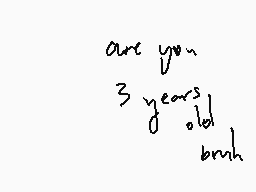 are you
3 years
old
bruh